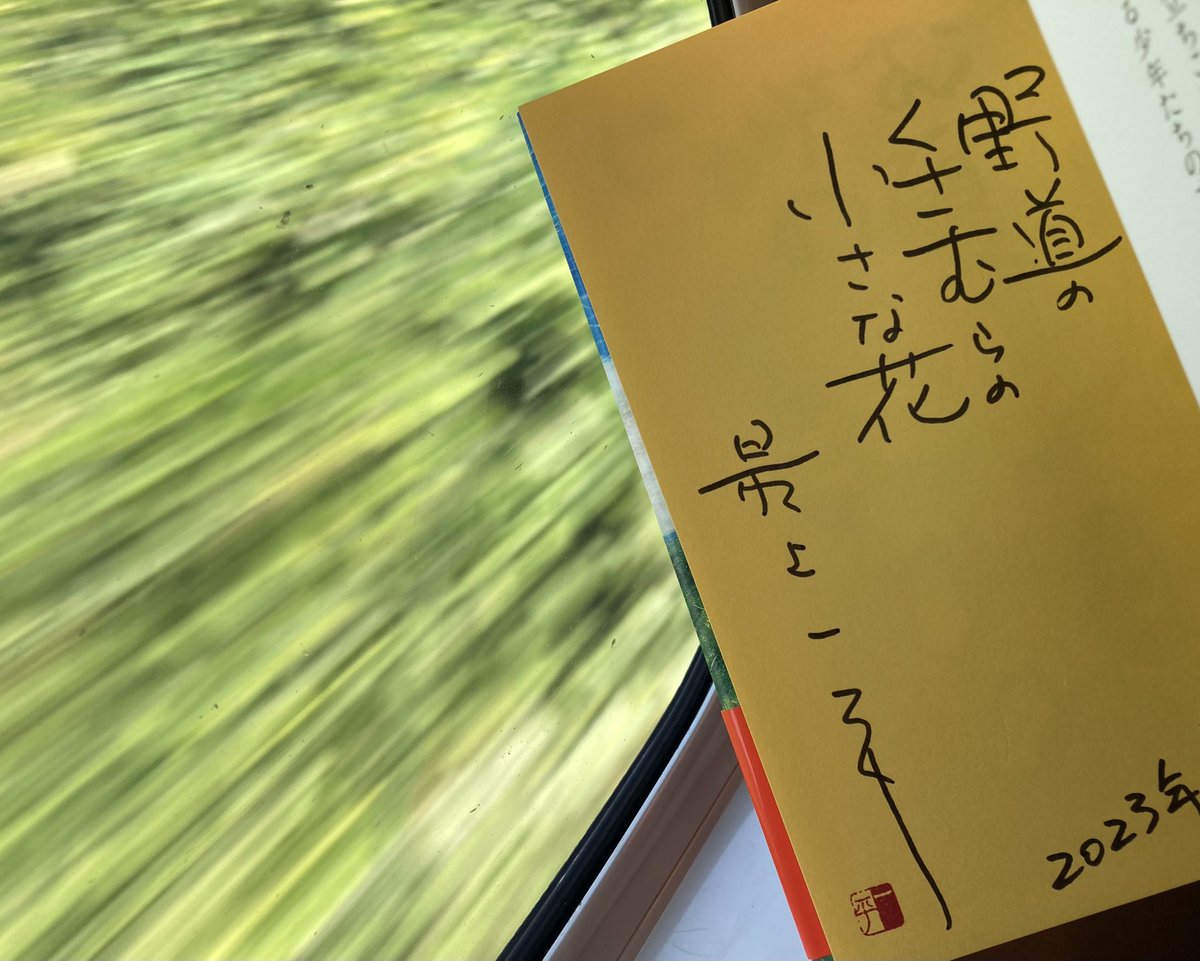 少年たちの
野道の
くさむらの
小さな花
最上一平
2023年
一平